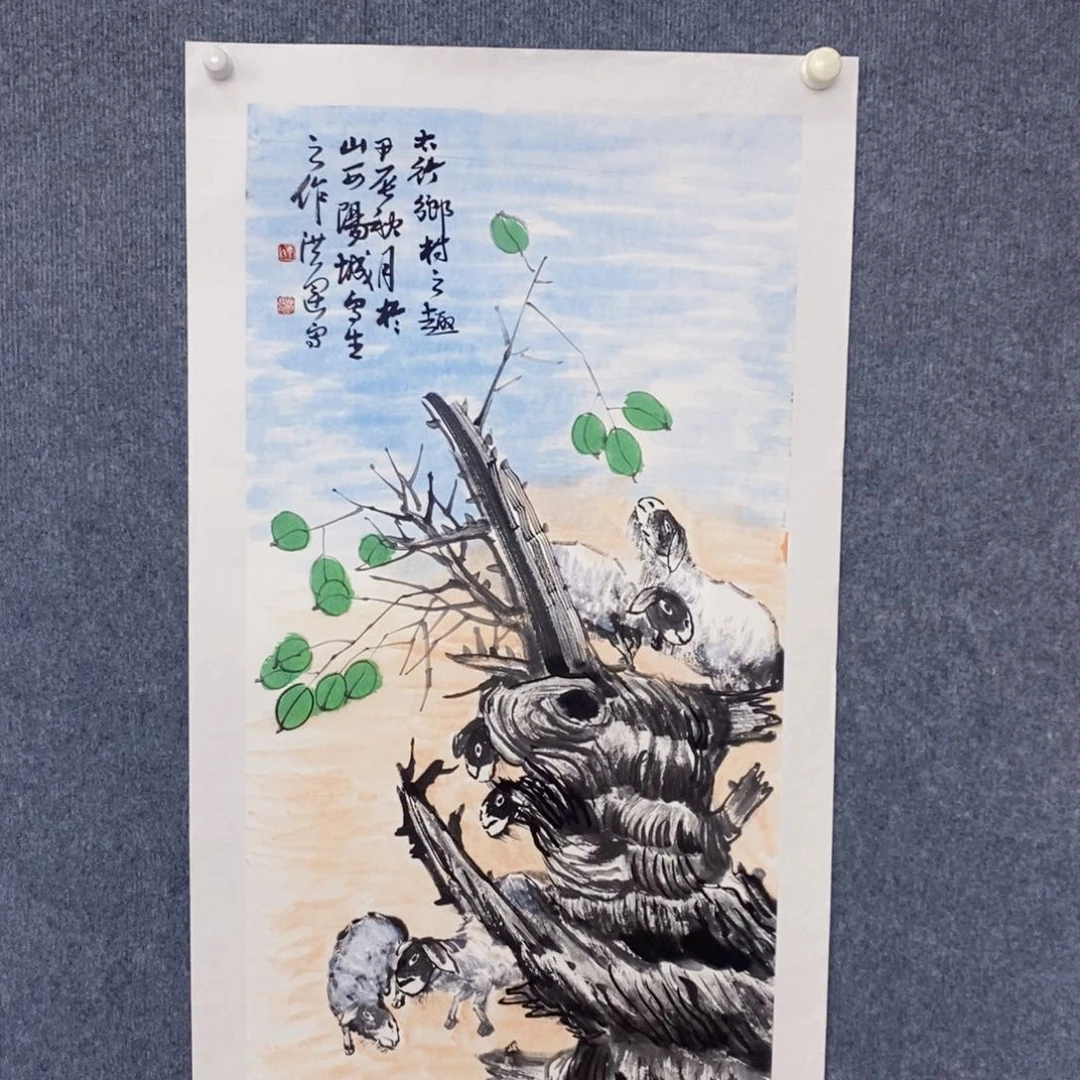 太行鄉村之趣
甲辰秋月於
山西陽城写生
之作 洪运写